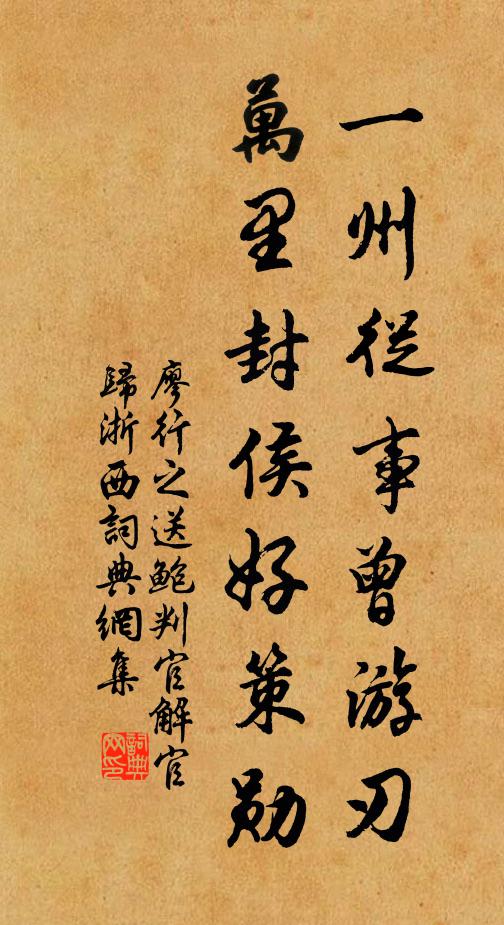 一州從事曾游刃
萬里封侯好策勛
廖行之送鮑判官解官
歸浙西詞典網集
詞典网印